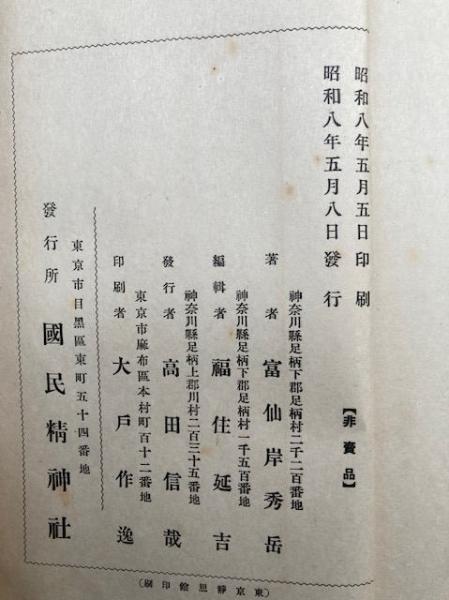 昭和八年五月五日印刷
昭和八年五月八日發行
【非賣品】
神奈川縣足柄下郡足柄村二千二百番地
著者 富仙岸秀岳
神奈川縣足柄下郡足柄村一千五百番地
編輯者 福住延吉
神奈川縣足柄上郡川村二百三十五番地
發行者 高田信哉
東京市麻布區本村町百十二番地
印刷者 大戸作逸
東京市目黑區東町五十四番地
發行所 國民精神社
(東京靜思館印刷)